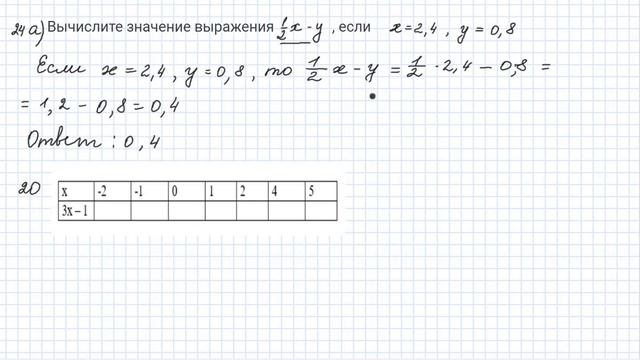 24 а) Вычислите значение выражения 1/2 x - y , если x = 2,4 , y = 0,8
Если x = 2,4 , y = 0,8 , то 1/2 x - y = 1/2 · 2,4 - 0,8 =
= 1,2 - 0,8 = 0,4
Ответ : 0,4
20
x -2 -1 0 1 2 4 5
3x – 1